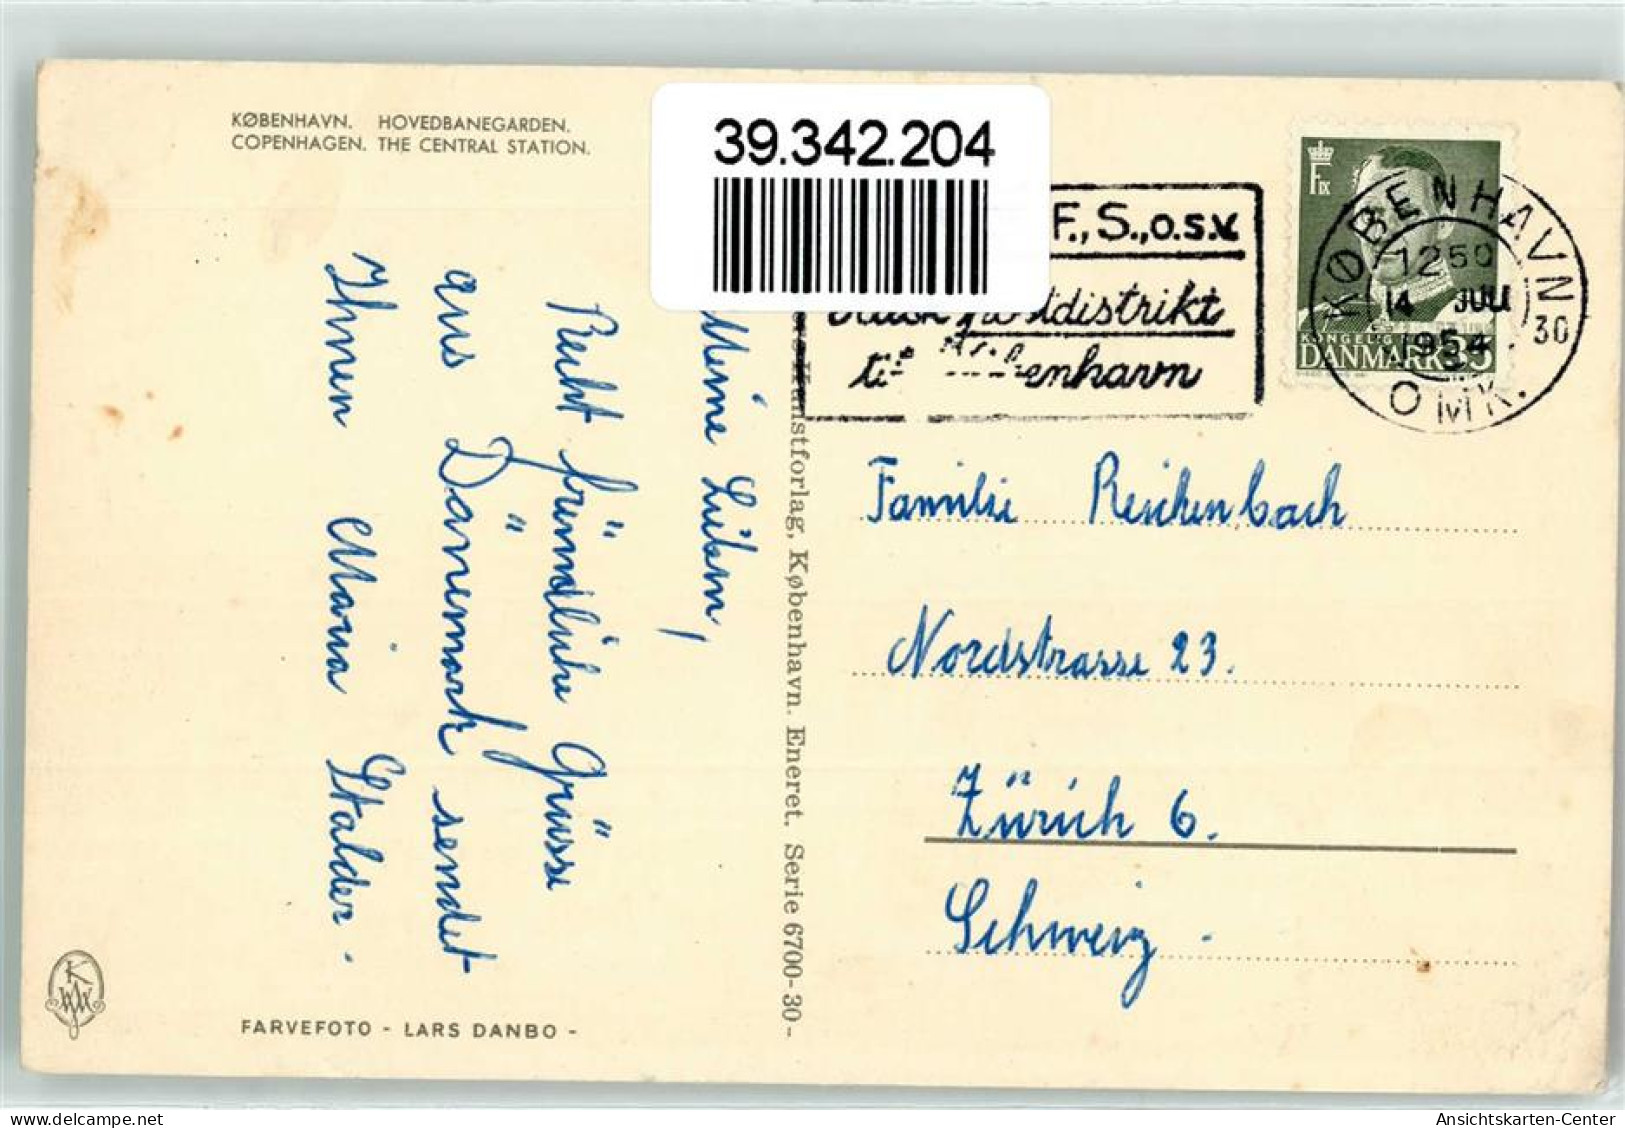 KØBENHAVN. HOVEDBANEGARDEN.
COPENHAGEN. THE CENTRAL STATION.
39.342.204
F., S., o.s.v.
postdistrikt
til København
F IX
KONGELIG
DANMARK 35
KØBENHAVN
1250
14 JULI
1954
30
OMK.
Meine Lieben,
Recht freundliche Grüsse
aus Dänemark sendet
Ihnen Maria Stalder.
Kunstforlag, København. Eneret. Serie 6700-30-
Familie Reichenbach
Nordstrasse 23.
Zürich 6.
Schweiz.
FARVEFOTO - LARS DANBO -
Ansichtskarten-Center